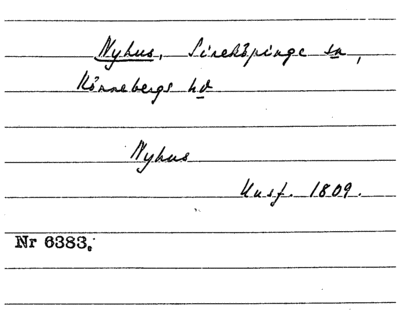 Nyhus, Sireköpinge sn,
Rönnebergs hd
Nyhus
Husf. 1809.
Nr 6383.